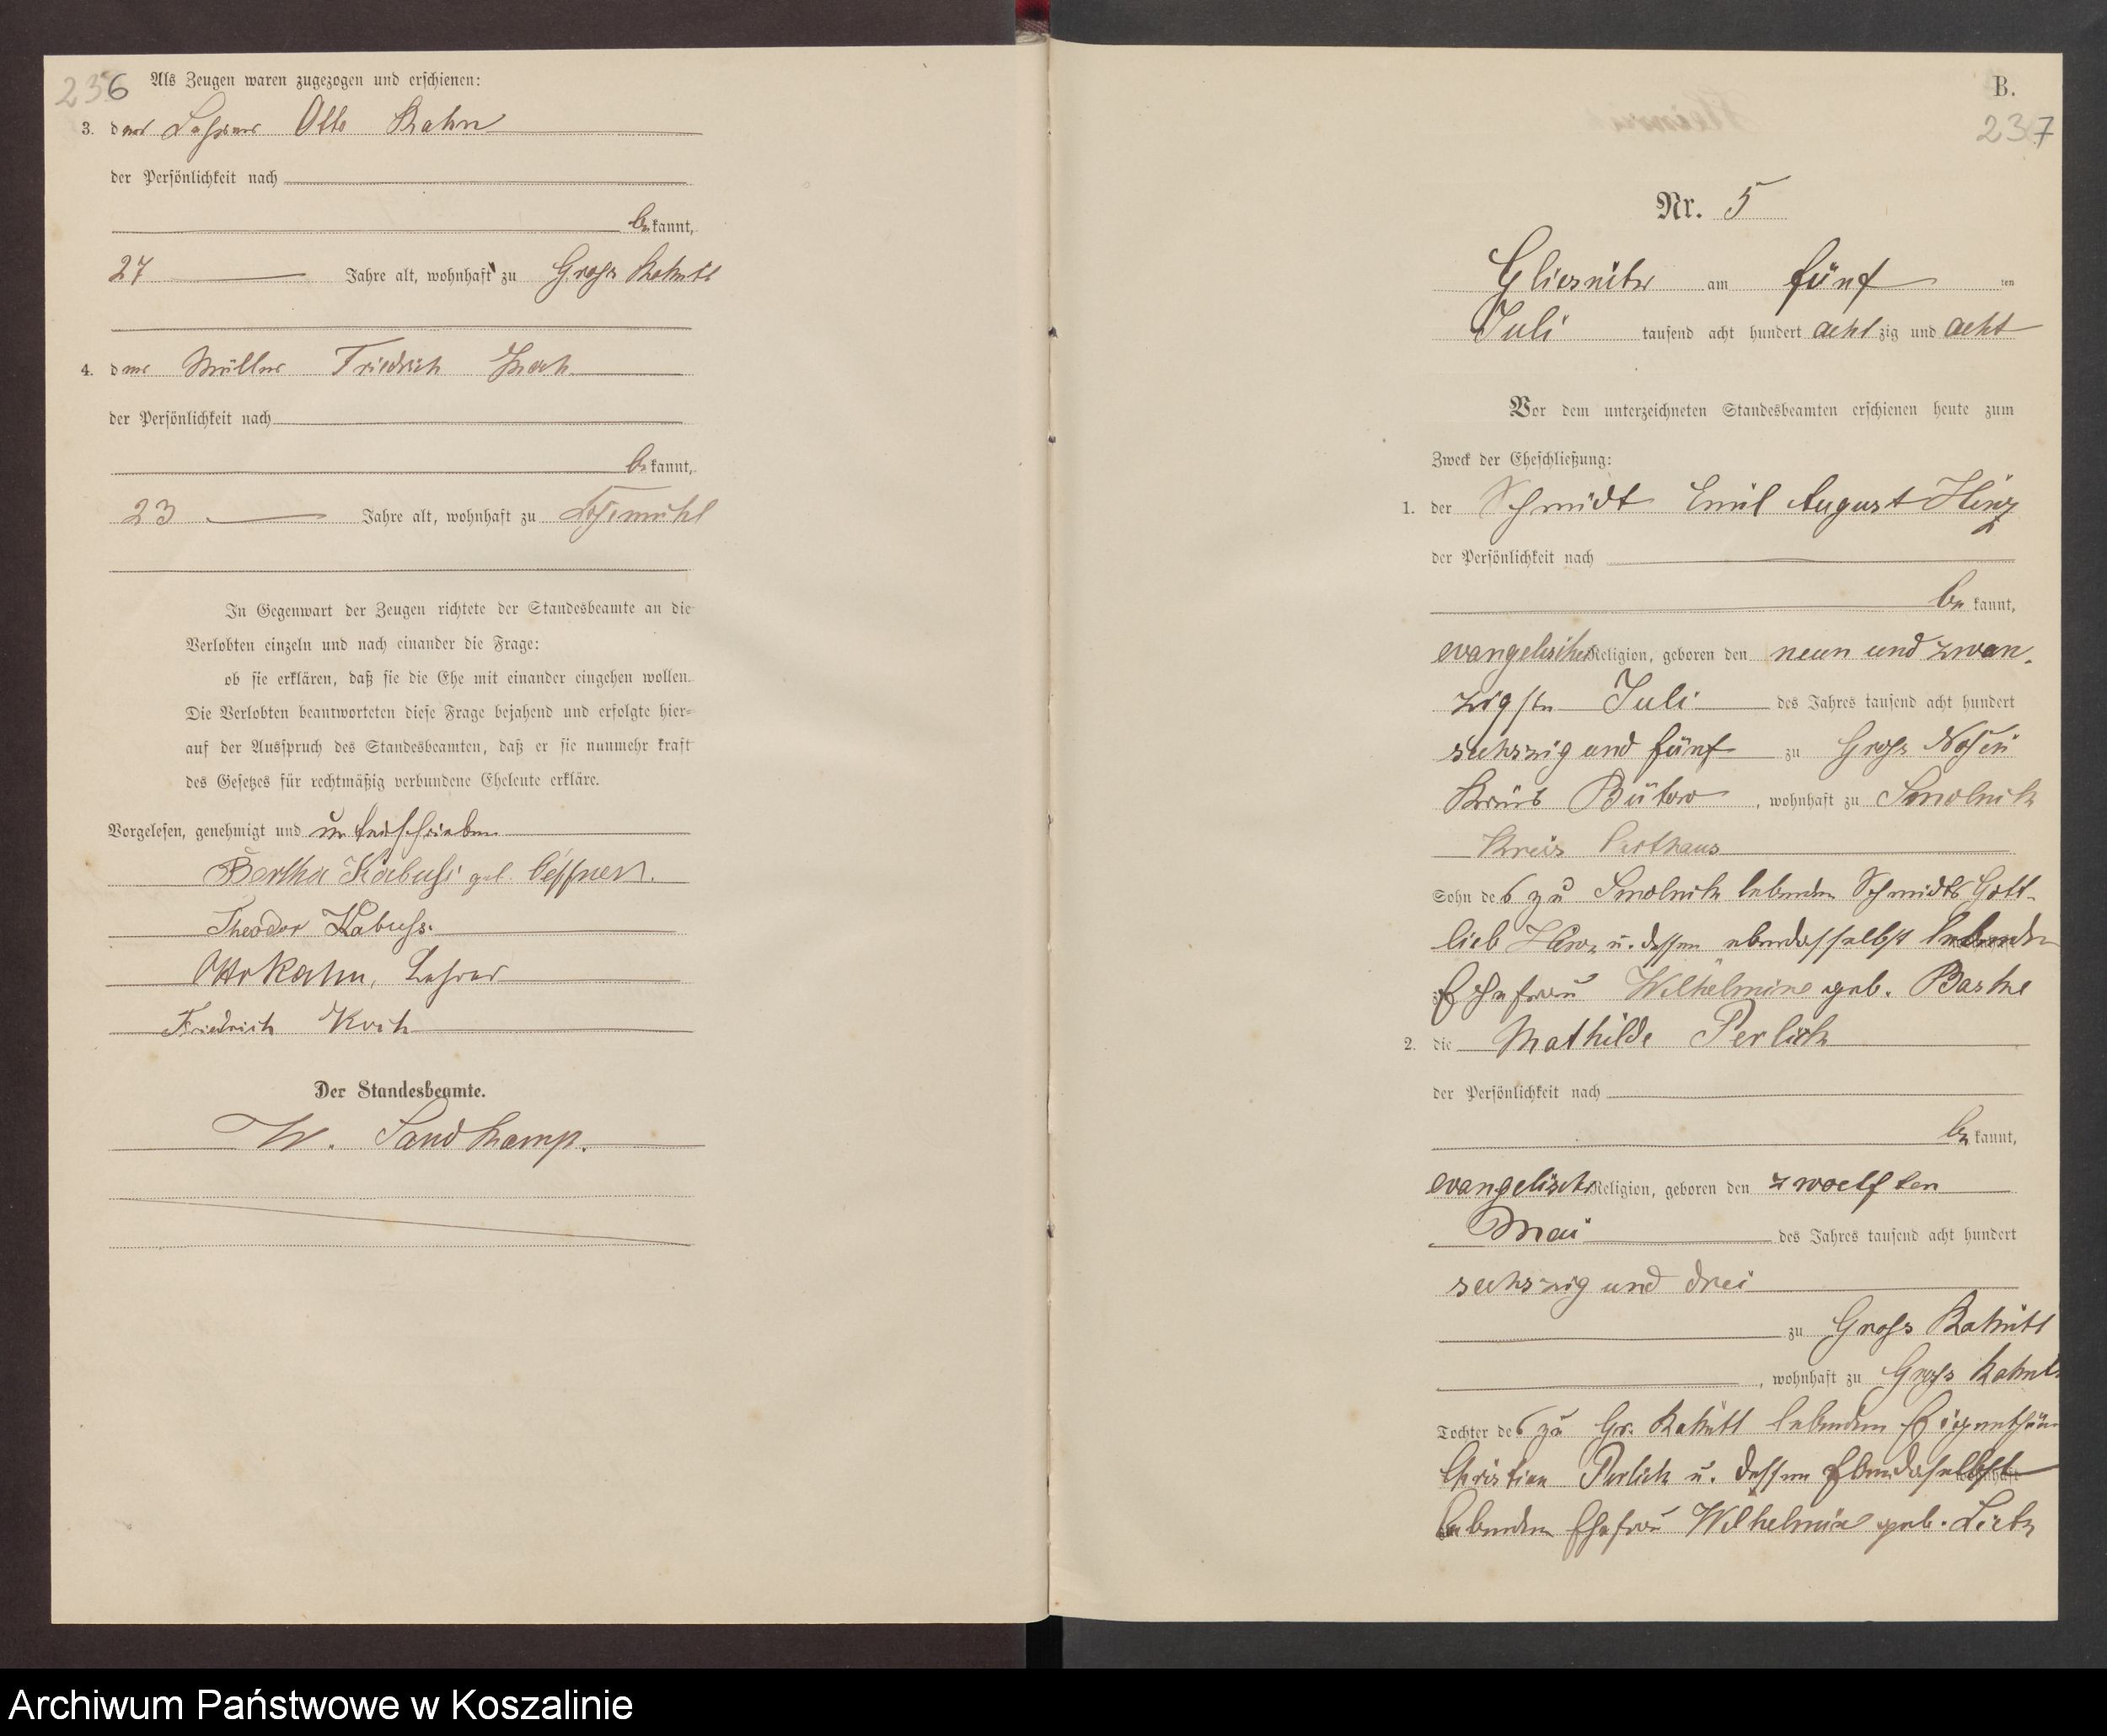 236
Als Zeugen waren zugezogen und erschienen:
3. der Lehrer Otto Kahn
der Persönlichkeit nach
bekannt,
27 Jahre alt, wohnhaft zu Gross Rakitt
4. der Müller Friedrich Koch
der Persönlichkeit nach
bekannt,
23 Jahre alt, wohnhaft zu
In Gegenwart der Zeugen richtete der Standesbeamte an die
Verlobten einzeln und nach einander die Frage:
ob sie erklären, daß sie die Ehe mit einander eingehen wollen.
Die Verlobten beantworteten diese Frage bejahend und erfolgte hier=
auf der Ausspruch des Standesbeamten, daß er sie nunmehr kraft
des Gesetzes für rechtmäßig verbundene Eheleute erkläre.
Vorgelesen, genehmigt und unterschrieben
Bertha Kabuss geb.
Theodor Kabuss.
Otto Kahn, Lehrer
Friedrich Koch
Der Standesbeamte.
W. Sandkamp.
B.
237
Nr. 5
Gliesnitz am fünf ten
Juli tausend acht hundert acht zig und acht
Vor dem unterzeichneten Standesbeamten erschienen heute zum
Zweck der Eheschließung:
1. der Schmidt Emil August Hinz
der Persönlichkeit nach
bekannt,
evangelischer Religion, geboren den neun und zwan-
zigsten Juli des Jahres tausend acht hundert
sechszig und fünf zu Gross
Kreis Bütow, wohnhaft zu Smolnik
Kreis Carthaus
Sohn des zu Smolnik lebenden Schmidts Gott-
lieb Hinz u. dessen ebendasselbst lebenden
Ehefrau Wilhelmine geb. Baske
2. die Mathilde Perlick
der Persönlichkeit nach
bekannt,
evangelischer Religion, geboren den zwoelften
Mai des Jahres tausend acht hundert
sechszig und drei
zu Gross Rakitt
, wohnhaft zu Gross Rakitt
Tochter des zu Gr. Rakitt lebenden
Christian Perlick u. dessen ebendaselbst
lebenden Ehefrau Wilhelmine geb. Lietz
Archiwum Państwowe w Koszalinie